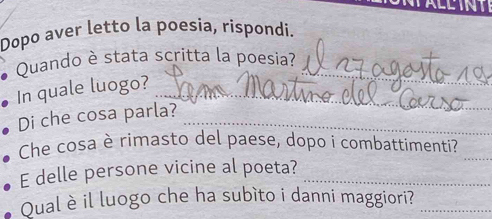 Dopo aver letto la poesia, rispondi.
• Quando è stata scritta la poesia? il 27 agosto 19
• In quale luogo? San Martino del Carso
• Di che cosa parla?
• Che cosa è rimasto del paese, dopo i combattimenti?
• E delle persone vicine al poeta?
• Qual è il luogo che ha subìto i danni maggiori?